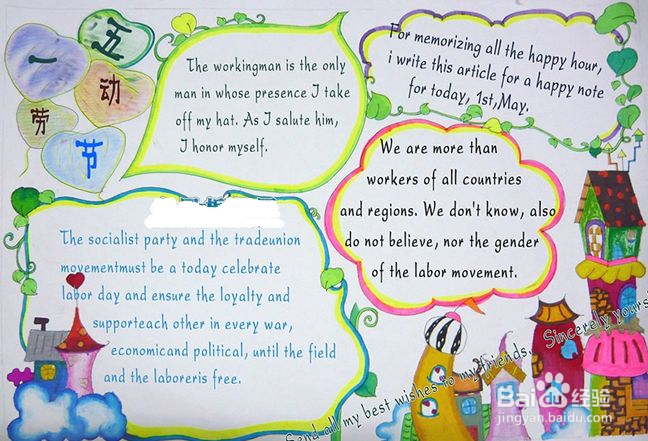 一
五
动
劳
节
The workingman is the only
man in whose presence I take
off my hat. As I salute him,
I honor myself.
For memorizing all the happy hour,
i write this article for a happy note
for today, 1st,May.
We are more than
workers of all countries
and regions. We don't know, also
do not believe, nor the gender
of the labor movement.
The socialist party and the tradeunion
movementmust be a today celebrate
labor day and ensure the loyalty and
supporteach other in every war,
economicand political, until the field
and the laboreris free.
Send all my best wishes to my friends. Sincerely yours!
Bai du 经验
jingyan.baidu.com